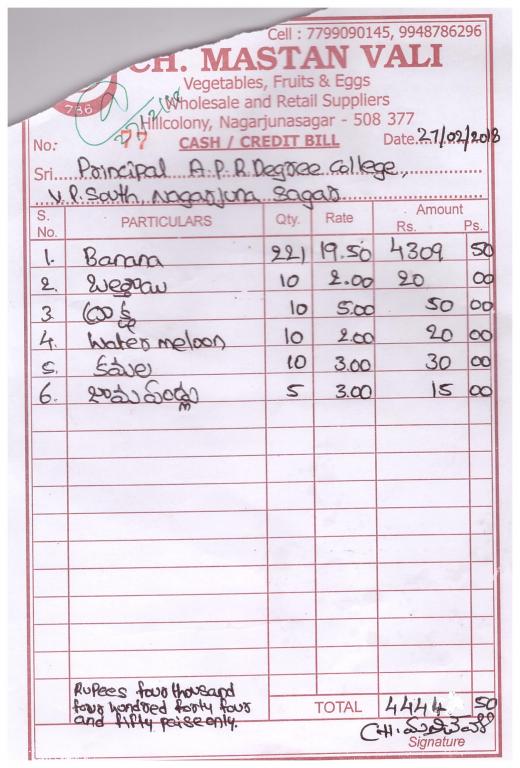 Cell : 7799090145, 9948786296
CH. MASTAN VALI
786
Vegetables, Fruits & Eggs
Wholesale and Retail Suppliers
Hillcolony, Nagarjunasagar - 508 377
No: 77 CASH / CREDIT BILL Date 27/02/2018
Sri Principal A.P.R. Degree College,
V.P. South, Nagarjuna Sagar
S. No. PARTICULARS Qty. Rate Amount Rs. Ps.
1. Banana 221 19.50 4309 50
2. 10 2.00 20 00
3. ద్రాక్ష 10 5.00 50 00
4. Water meloon 10 2.00 20 00
5. కమల 10 3.00 30 00
6. జామపండ్లు 5 3.00 15 00
Rupees four thousand
four hundred forty four
and fifty peise only.
TOTAL 4444 50
CH.
Signature